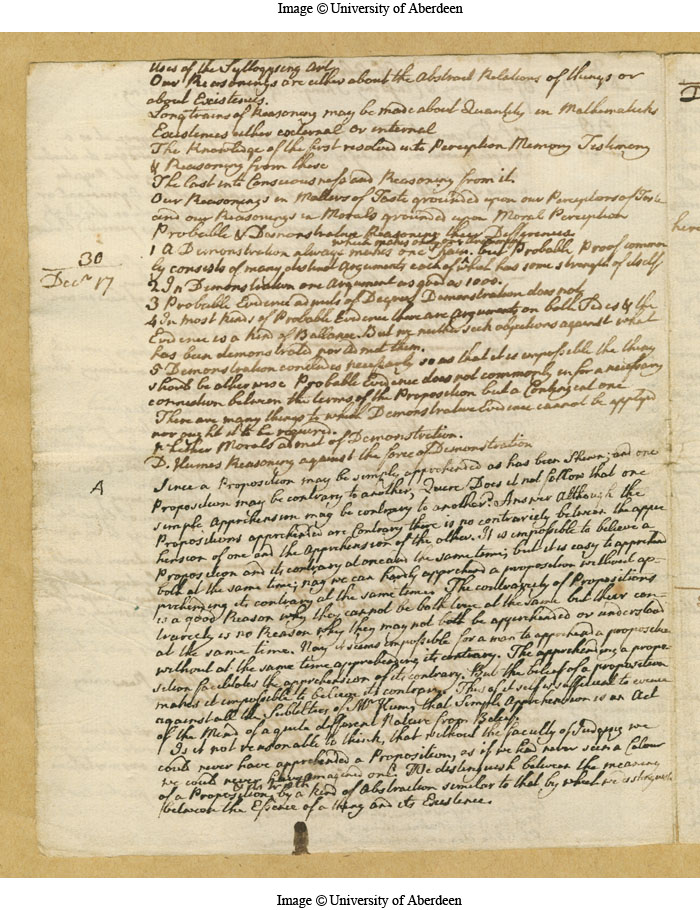 Image © University of Aberdeen
Uses of the Syllogysing Art
Our Reasonings are either about the Abstract Relations of things or
about Existences.
Long trains of Reasoning may be made about Quantity in Mathematicks
Existences either external or internal
The Knowledge of the first resolved into Perception Memory Testimony
& Reasoning from these
The Last into Consciousness and Reasoning from it.
Our Reasonings in Matters of Taste grounded upon our Perceptions of Taste
and our Reasonings in Morals grounded upon Moral Perception
Probable & Demonstrative Reasoning their Differences.
which makes only one Argument
1 A Demonstration always makes one Chain. but Probable Proof common
ly consists of many distinct Arguments each of which has some strength of itself
30
Decr 17
2 In Demonstration one Argument as good as 1000.
3 Probable Evidence admits of Degrees Demonstration does not
4 In most kinds of Probable Evidence there are Arguments on both Sides & the
Evidence is a kind of Ballance. But no such objections against what
has been demonstrated nor Admit them.
5 Demonstration concludes necessarly so as that it is impossible the thing
should be otherwise Probable Evidence does not commonly infer a necessary
connection between the terms of the Proposition but a Contingent one
There are many things to which Demonstrative Evidence cannot be applyed
nor ought it to be required.
Whether Morals admit of Demonstration.
D. Humes Reasoning against the force of Demonstration
A
Since a Proposition may be simply apprehended as has been Shewn; and one
Proposition may be contrary to another, Quere Does it not follow that one
simple Apprehension may be contrary to another? Answer Although the
Propositions apprehended are Contrary there is no contrariety between the appre
hension of one and the Apprehension of the other. It is impossible to believe a
Proposition and its contrary at once at the same time; but it is easy to apprehend
both at the same time; nay we can hardly apprehend a proposition without ap-
prehending its contrary at the same time. The contrariety of Propositions
is a good Reason why they cannot be both true at the same but their con-
trariety is no Reason why they may not both be apprehended or understood
at the same time. Nay it seems impossible for a man to apprehend a proposition
without at the same time apprehending its contrary. The apprehending a propo
sition facilitates the apprehension of its contrary. But the belief of a proposition
makes it impossible to believe its contrary. This of it self is sufficient to evince
against all the Subtilties of Mr Hume that Simple Apprehension is an Act
of the Mind of a quite different Nature from Belief.
Is it not reasonable to think, that without the faculty of Judging we
could never have apprehended a Proposition, as if we had never seen a Colour
we could never have imagined one? We distinguish between the meaning
& its truth
of a Proposition by a kind of Abstraction similar to that by which we distinguish
between the Essence of a thing and its Existence.
Image © University of Aberdeen